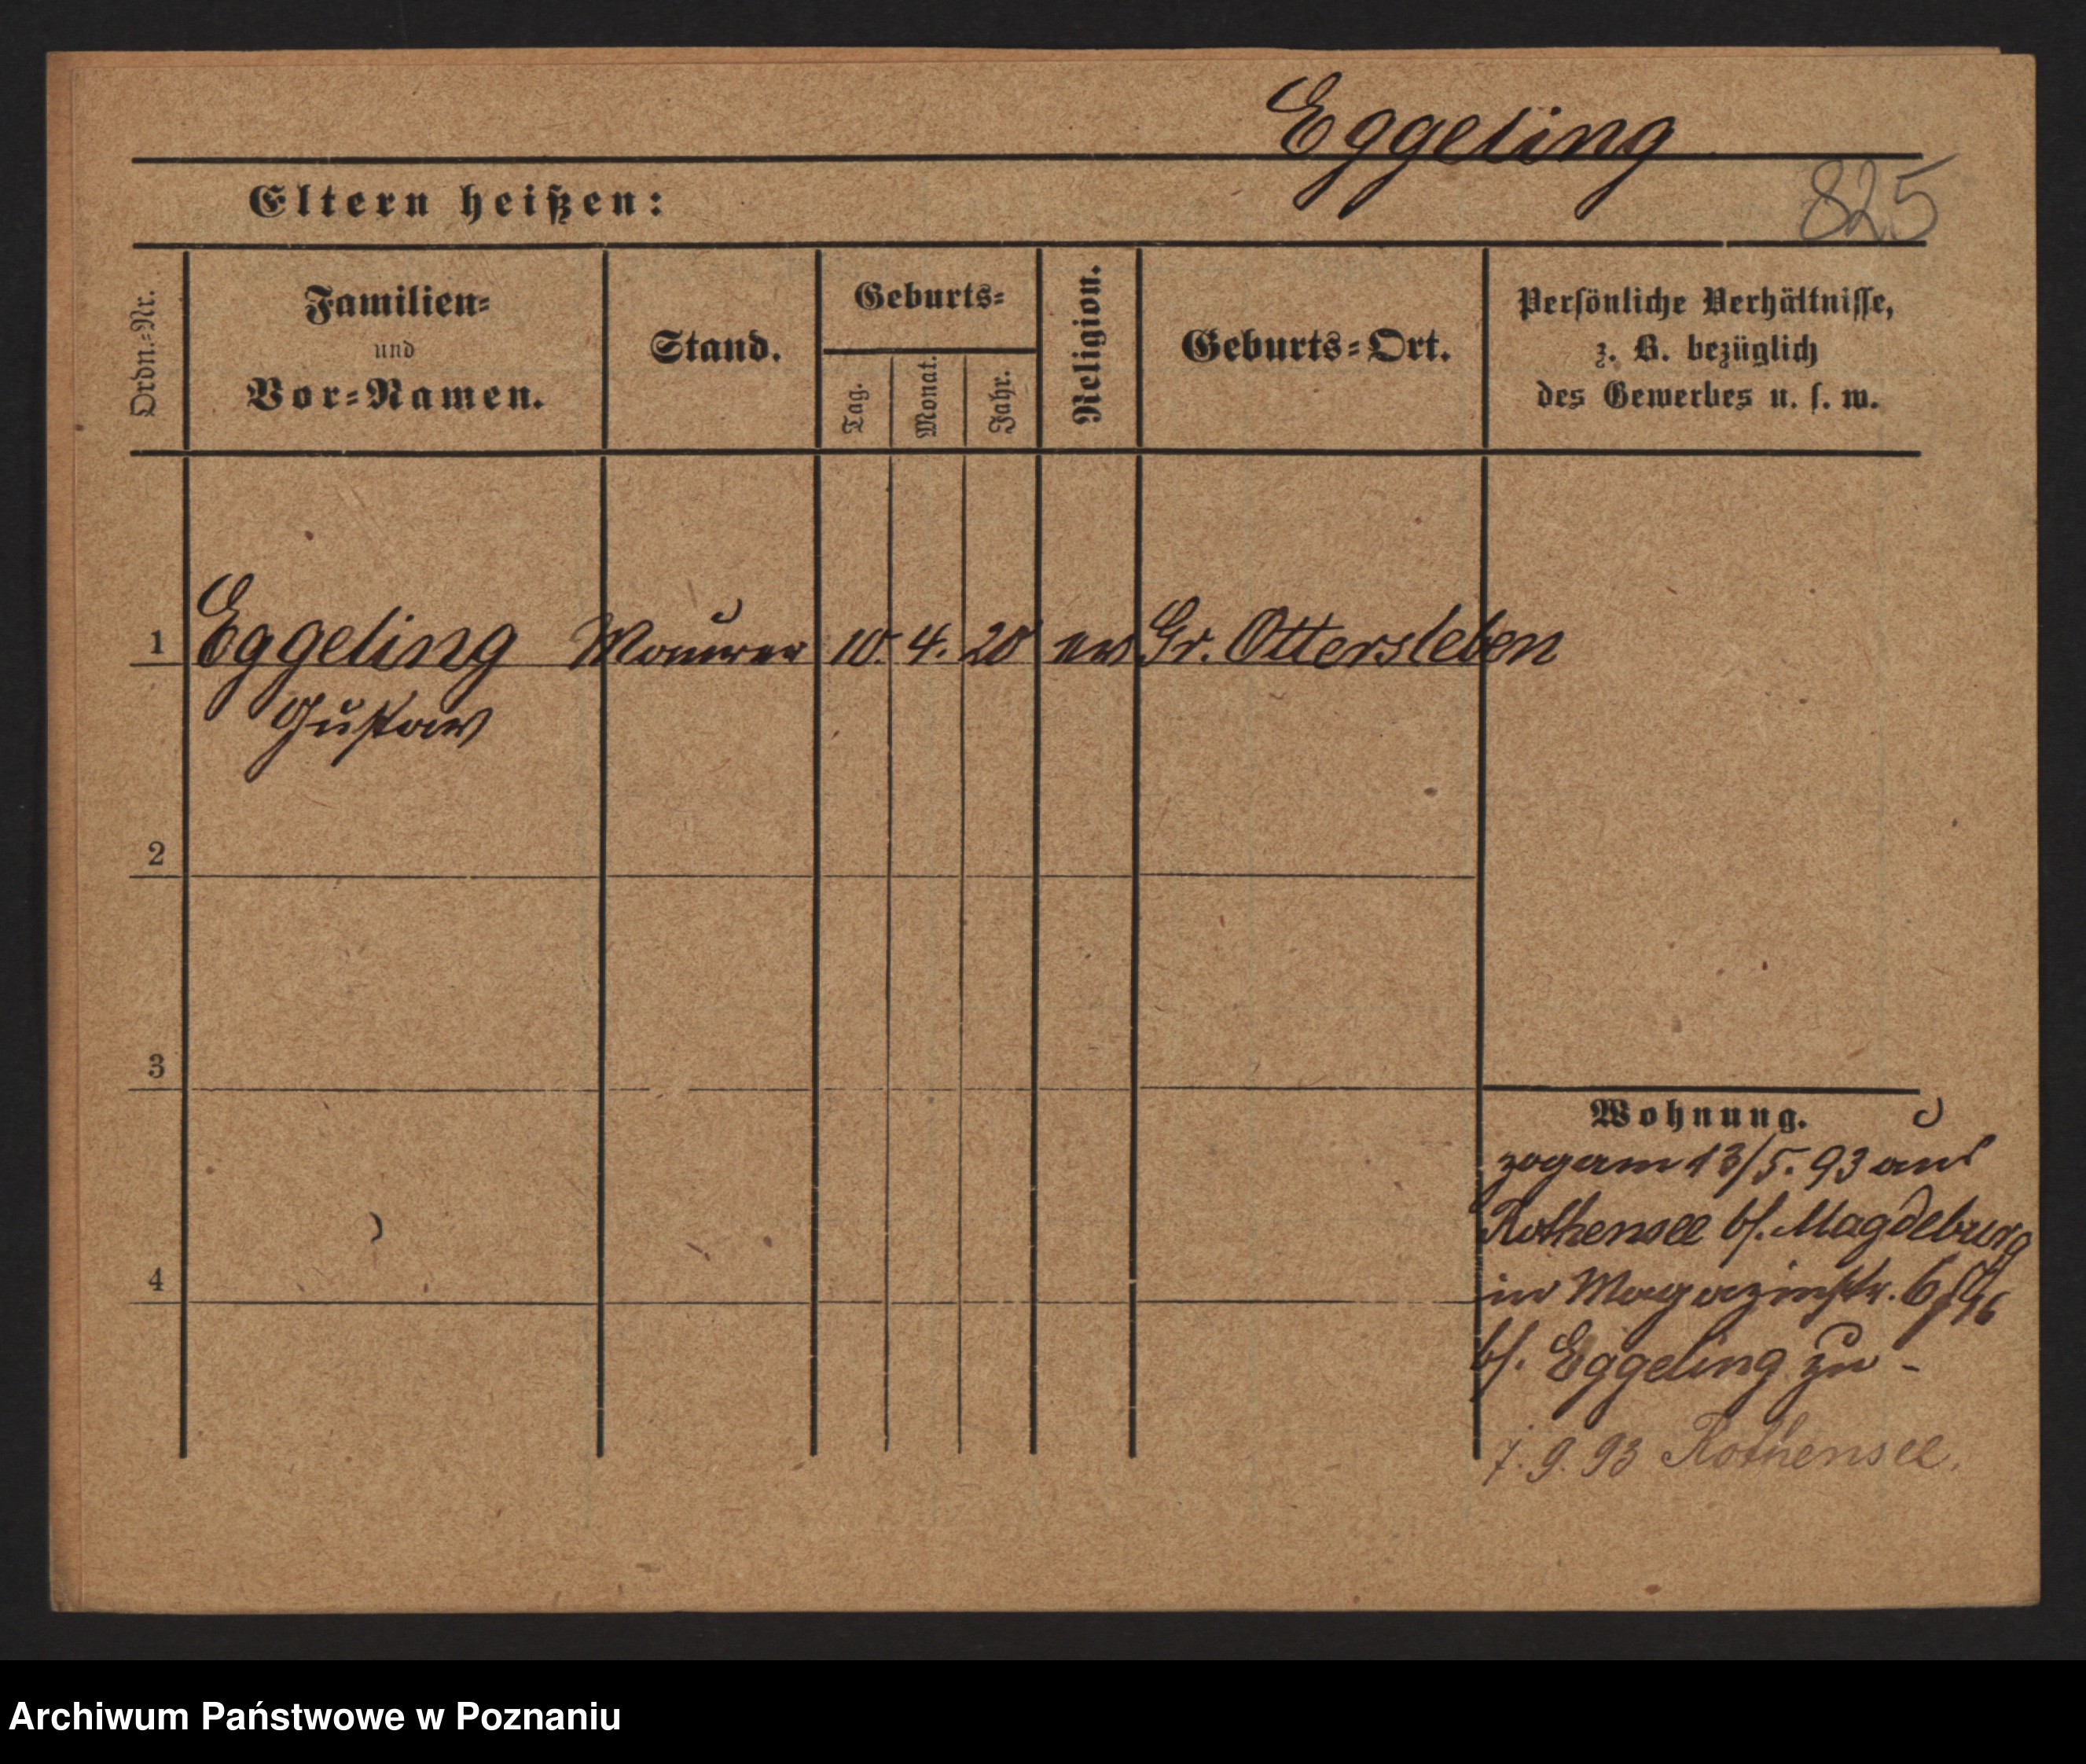 Eggeling
825
Eltern heißen:
Ordn.-Nr.
Familien-
und
Vor-Namen.
Stand.
Geburts-
Tag.
Monat.
Jahr.
Religion.
Geburts-Ort.
Persönliche Verhältnisse,
z. B. bezüglich
des Gewerbes u. s. w.
1 Eggeling Maurer 10. 4. 20 ev Gr. Ottersleben
Gustav
2
3
4
Wohnung.
zog am 13/5. 93 aus
Rothensee b/. Magdeburg
in Magazinstr. 6
b/. Eggeling zu -
7. 9. 93 Rothensee.
Archiwum Państwowe w Poznaniu